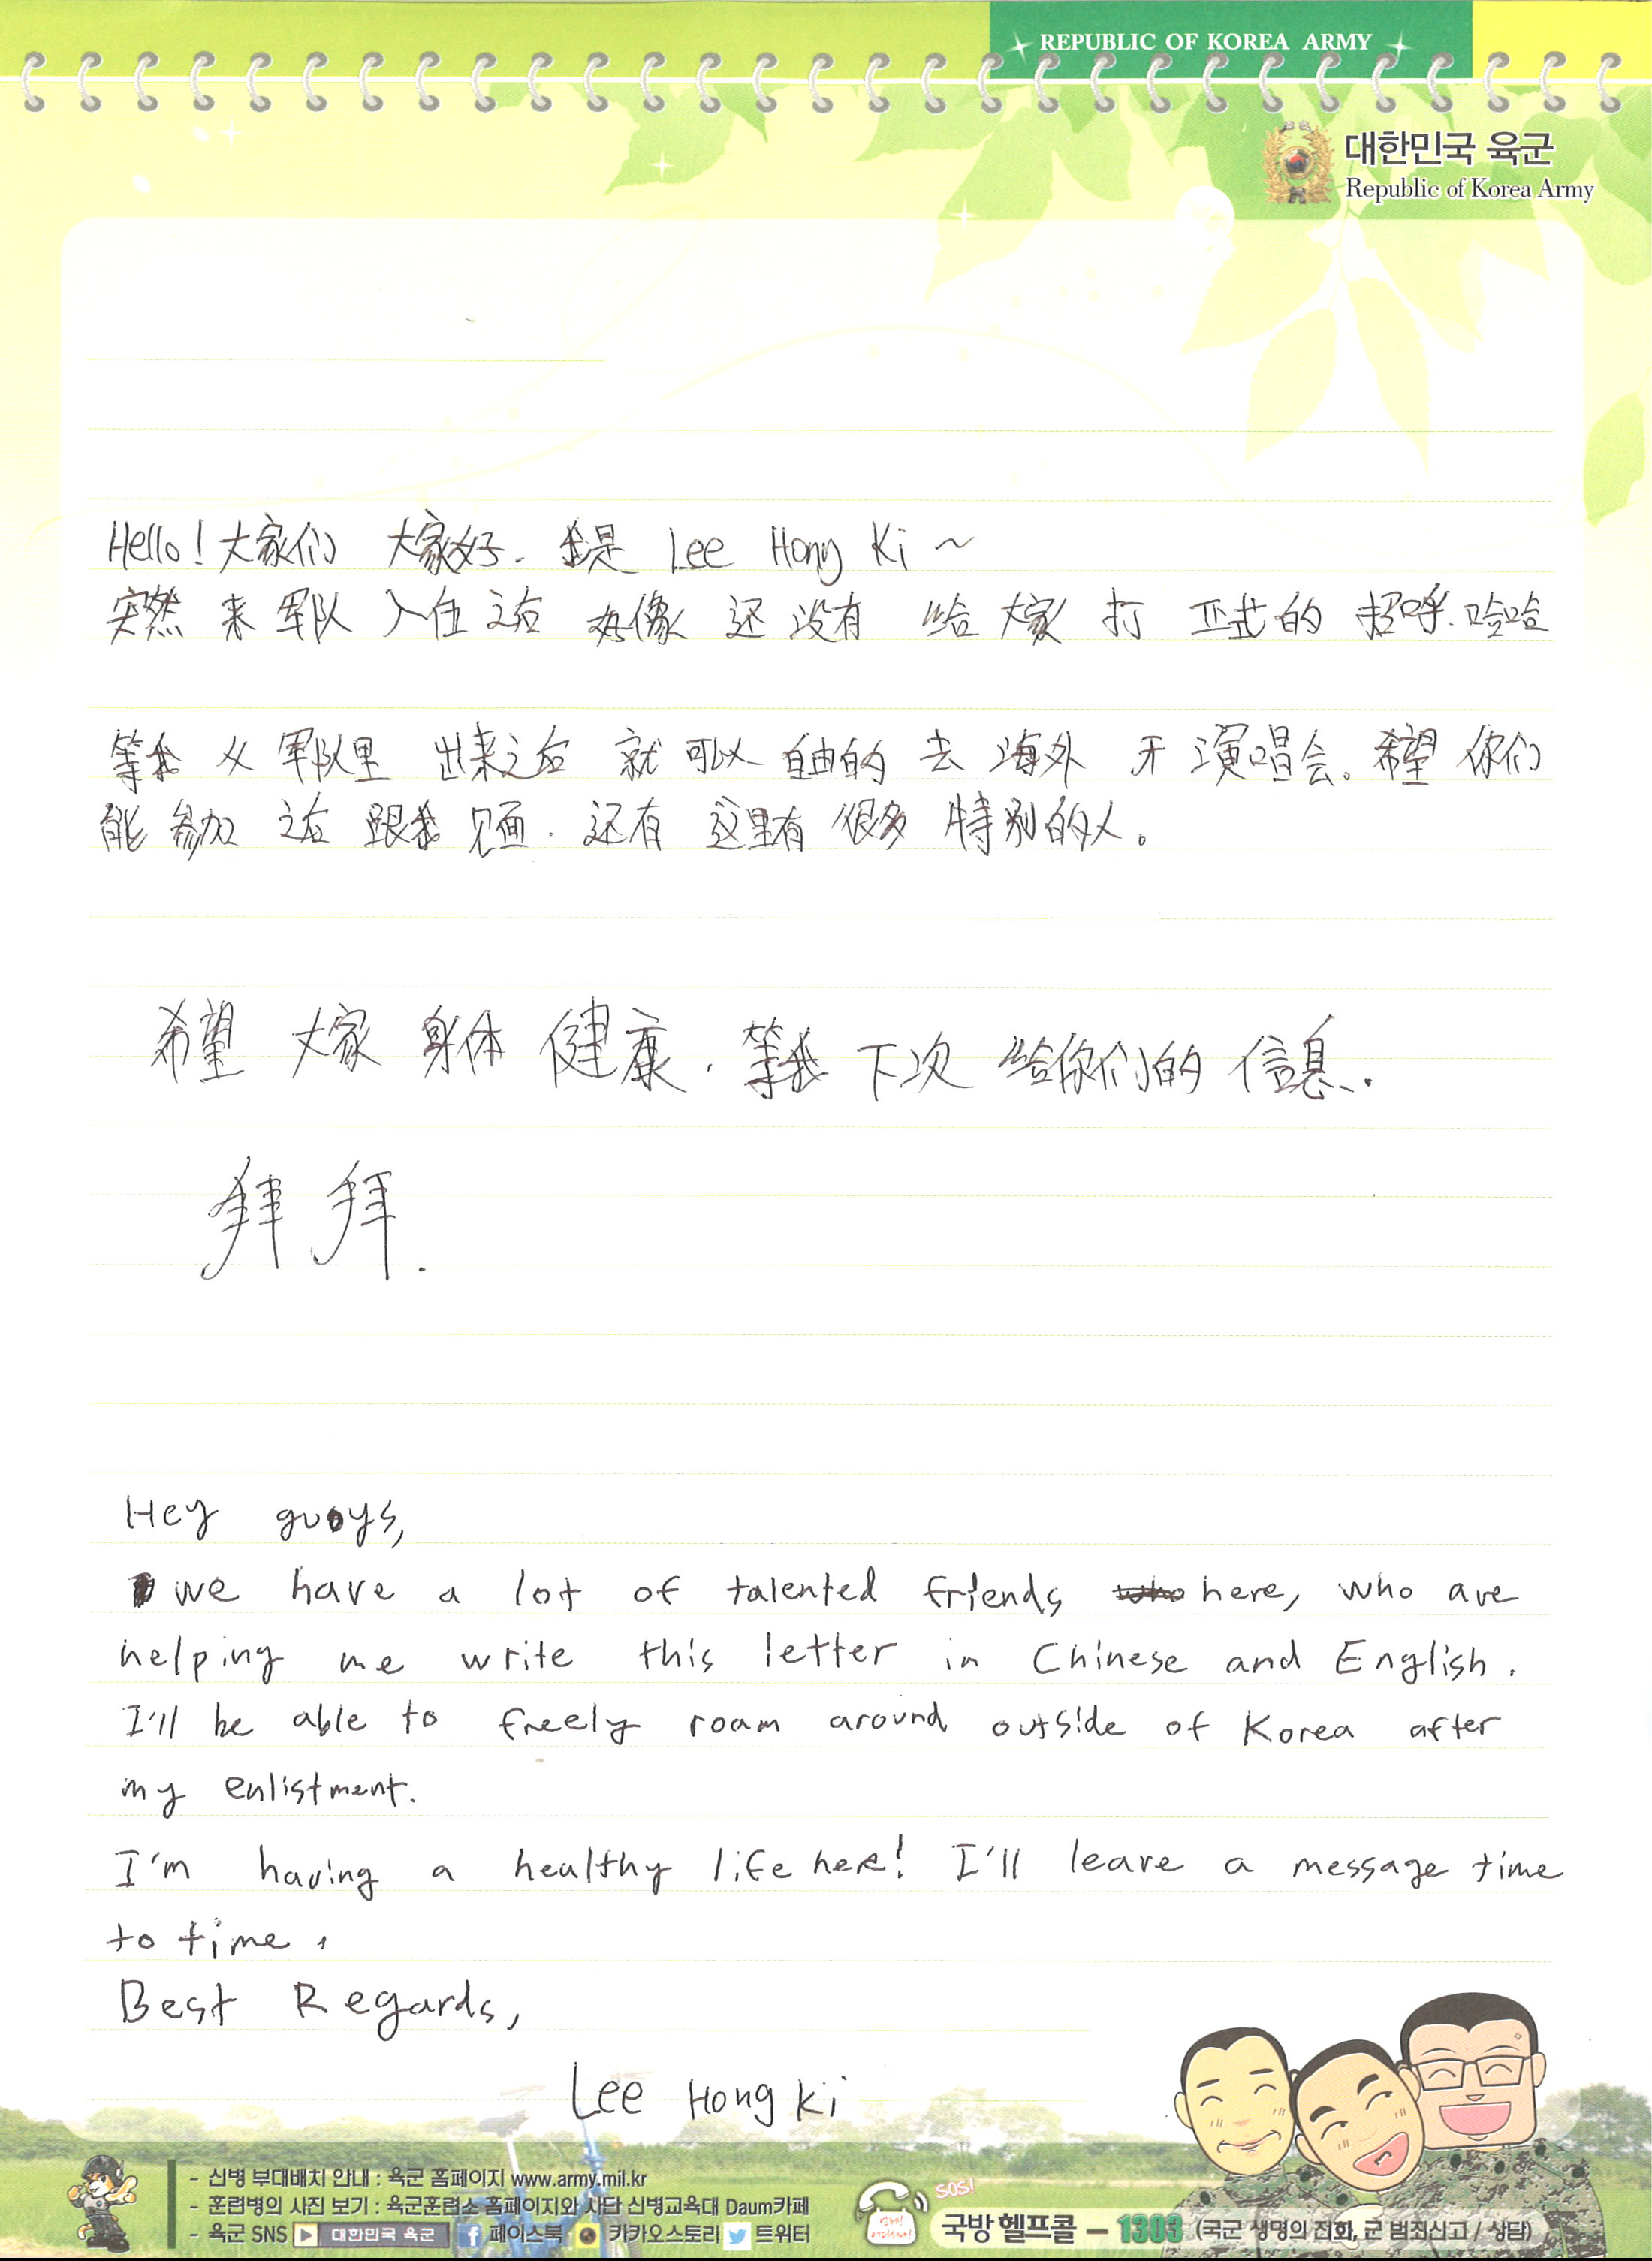 REPUBLIC OF KOREA ARMY
대한민국 육군
Republic of Korea Army
Hello! 大家们 大家好. 我是 Lee Hong Ki ~
突然 来 军队 入伍 之后 好像 还 没有 给 大家 打 正式 的 招呼. 哈哈
等我 从 军队里 出来之后 就 可以 自由的 去 海外 开 演唱会。希望 你们
能 参加 之后 跟我 见面. 还有 这里有 很多 特别的人。
希望 大家 身体 健康. 等我 下次 给你们的 信息.
拜拜.
Hey guys,
we have a lot of talented friends here, who are
helping me write this letter in Chinese and English.
I'll be able to freely roam around outside of Korea after
my enlistment.
I'm having a healthy life here! I'll leave a message time
to time.
Best Regards,
Lee Hong Ki
- 신병 부대배치 안내 : 육군 홈페이지 www.army.mil.kr
- 훈련병의 사진 보기 : 육군훈련소 홈페이지와 사단 신병교육대 Daum카페
- 육군 SNS 대한민국 육군 페이스북 카카오스토리 트위터
SOS!
국방 헬프콜 - 1303 (국군 생명의 전화, 군 범죄신고 / 상담)